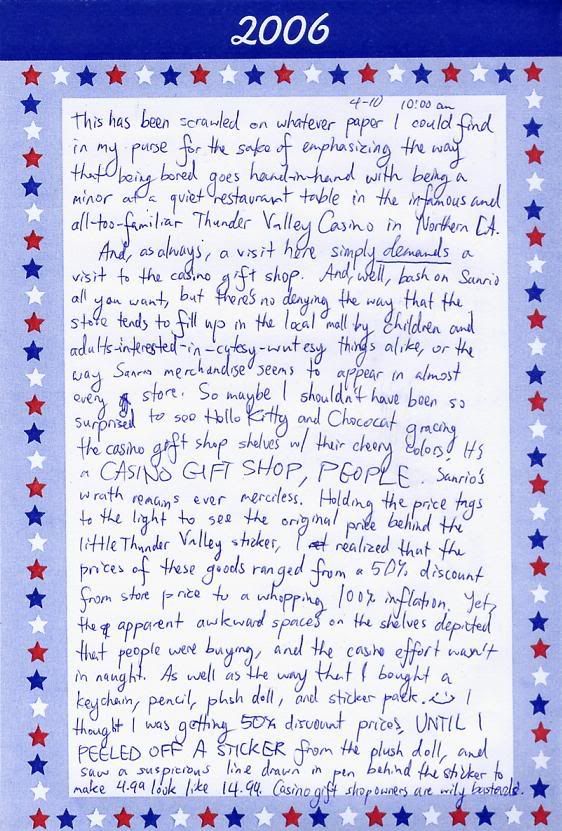 2006
4-10 10:00 am
This has been scrawled on whatever paper I could find
in my purse for the sake of emphasizing the way
that being bored goes hand-in-hand with being a
minor at a quiet restaurant table in the infamous and
all-too-familiar Thunder Valley Casino in Northern CA.
And, as always, a visit here simply demands a
visit to the casino gift shop. And, well, bash on Sanrio
all you want, but there's no denying the way that the
store tends to fill up in the local mall by children and
adults-interested-in-cutesy-wutesy things alike, or the
way Sanrio merchandise seems to appear in almost
every store. So maybe I shouldn't have been so
surprised to see Hello Kitty and Chococat gracing
the casino gift shop shelves w/ their cheery colors. It's
a CASINO GIFT SHOP, PEOPLE. Sanrio's
wrath remains ever merciless. Holding the price tags
to the light to see the original price behind the
little Thunder Valley sticker, I realized that the
prices of these goods ranged from a 50% discount
from store price to a whopping 100% inflation. Yet,
the apparent awkward spaces on the shelves depicted
that people were buying, and the casino effort wasn't
in naught. As well as the way that I bought a
keychain, pencil, plush doll, and sticker pack. I
thought I was getting 50% discount prices, UNTIL I
PEELED OFF A STICKER from the plush doll, and
saw a suspicious line drawn in pen behind the sticker to
make 4.99 look like 14.99. Casino gift shop owners are wily bastards.